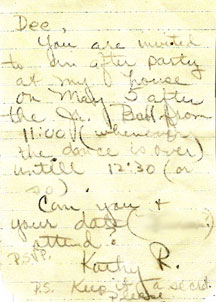 Dee,
You are invited
to an after party
at my house
on May 5 after
the Jr. Ball from
11:00 (whenever
the dance is over)
untill 12:30 (or
so)
Can you +
your date (
attend?
RSVP.
Kathy R.
P.S. Keep it a secret
Please